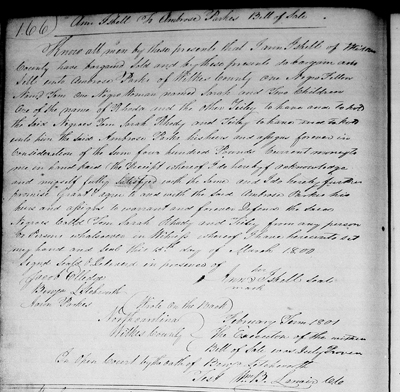 166 Ann Ishell To Ambrose Parkes Bill of Sale
Know all men by these presents that I Ann Ishell of Wilkes
County have bargained Sold and by these presents do bargain and
Sell unto Ambrose Parks of Wilkes County one Negro Fellow
Named Tom one Negro Woman named Sarah and Two Children
One of the name of Rhoda and the other to have and to hold
the said Negroes Tom Sarah and to have and to hold
unto him the said Ambrose Parks his heirs and assigns forever in
Consideration of the Sum four hundred Pounds Current money to
me in hand paid the Receipt whereof I do hereby acknowledge
and myself fully Satisfyed with the same and I do hereby further
promise Grant & agree to and with the said Ambrose Parkes his
heirs and assigns to warrant and forever Defend the said
Negroes Called Tom Sarah and from any person
or Persons whatsoever In Witness whereof I have hereunto set
my hand and Seal this 15th day of March 1800
Signd Seald & Delivered in presence of her
Jacob Ann Ishell Seal
mark
Aaron Parkes
North Carolina February Term 1801
Wilkes County The Execution of the within
Bill of Sale was duly Proven
In Open Court by the oath of
Test Wm B. Lenoir